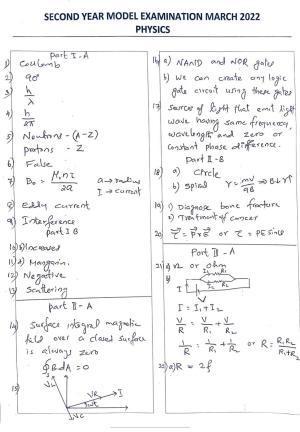 SECOND YEAR MODEL EXAMINATION MARCH 2022
PHYSICS
part I-A
1) Coulomb
2) 90°
3) h/λ
4) h/2π
5) Neutrons - (A-Z)
protons - Z
6) False
7) B₀ = μ₀nI/2a a → radius
I → current
8) Eddy current
9) Interference
part I B
10) Increased
11) Manganin
12) Negative
13) Scattering
part II - A
14) Surface integral magnetic
field over a closed surface
is always zero
∮B.dA = 0
15)
VL
VR
I
VC
16) a) NAND and NOR gates
b) We can create any logic
gate circuit using these gates
17) Sources of light that emit light
wave having same frequency,
wavelength and zero or
constant phase difference.
Part II - B
18) a) Circle
b) Spiral r = mv/qB → B↓ r↑
19) 1) Diagnose bone fracture
2) Treatment of cancer
20) τ = P×E or τ = PE sinθ
Part III - A
21) or ohm
I₁ R₁
I₂ R₂
I = I₁ + I₂
V/R = V/R₁ + V/R₂
1/R = 1/R₁ + 1/R₂ or R = R₁R₂/R₁+R₂
22) a) R = 2f